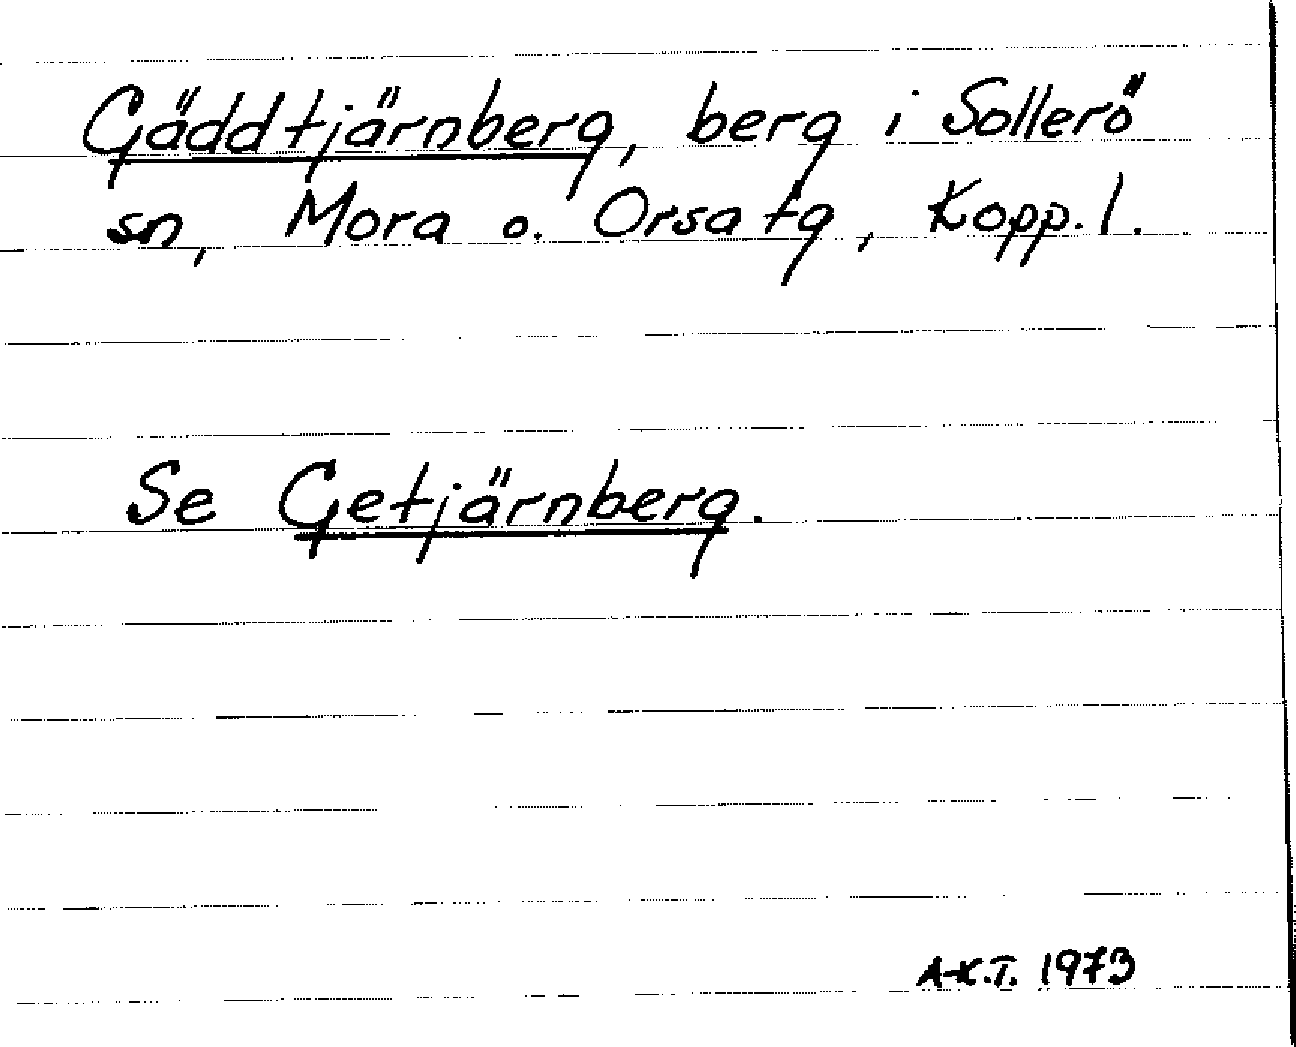 Gäddtjärnberg, berg i Sollerö
sn, Mora o. Orsa tg, Kopp. l.
Se Getjärnberg.
A-K.T. 1973